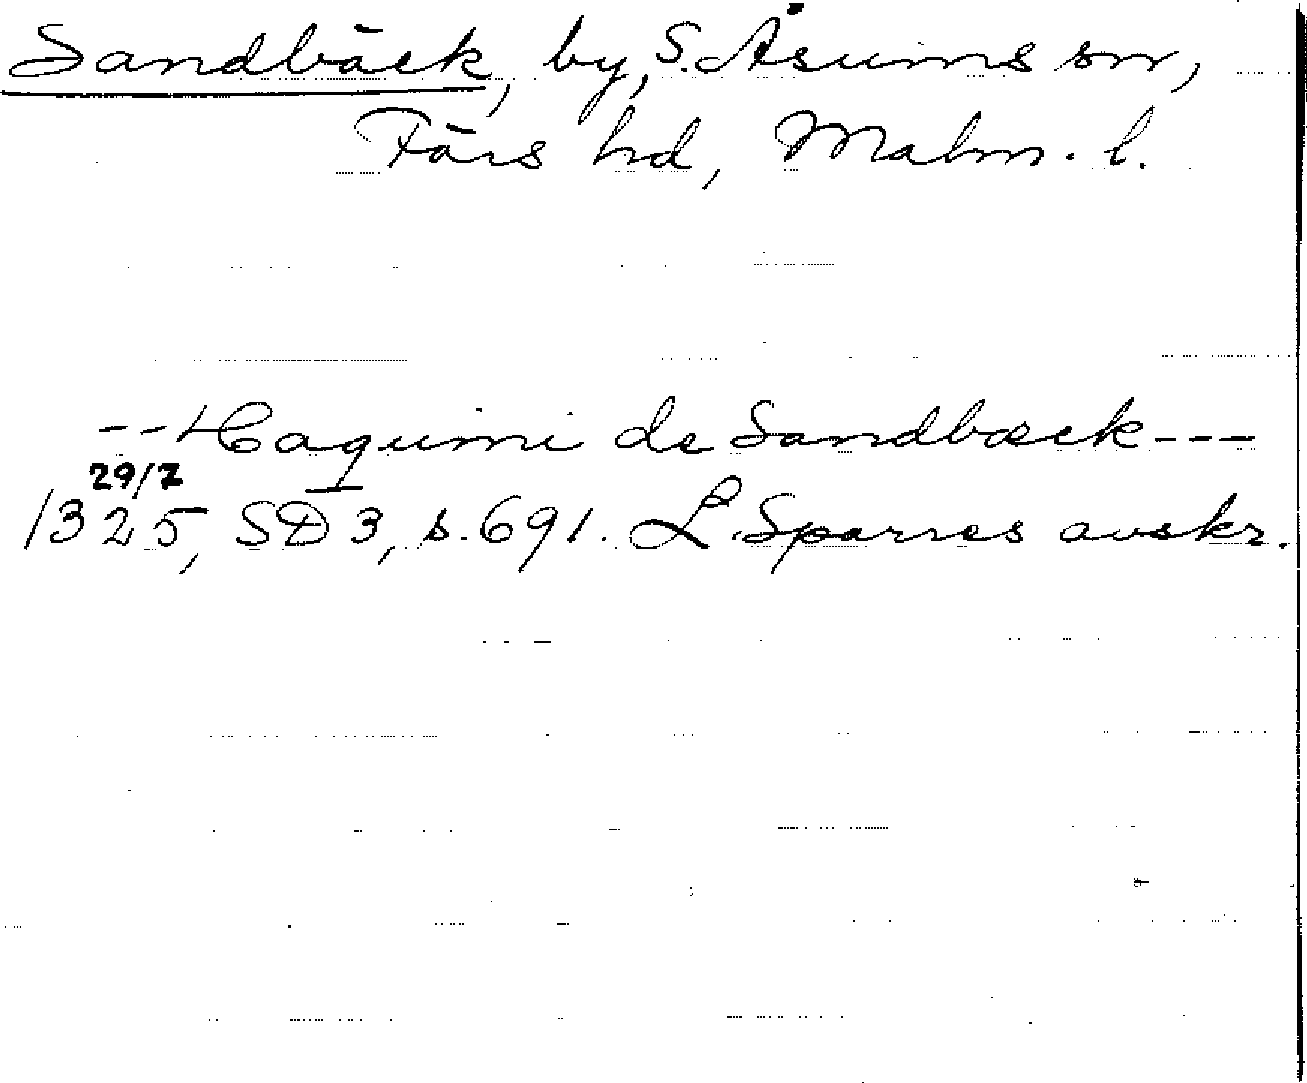 Sandbäck, by, S. Åsums sn,
Färs hd, Malm. l.
--Haquini de Sandbæck---
29/7
1325, SD 3, s. 691. L. Sparres avskr.